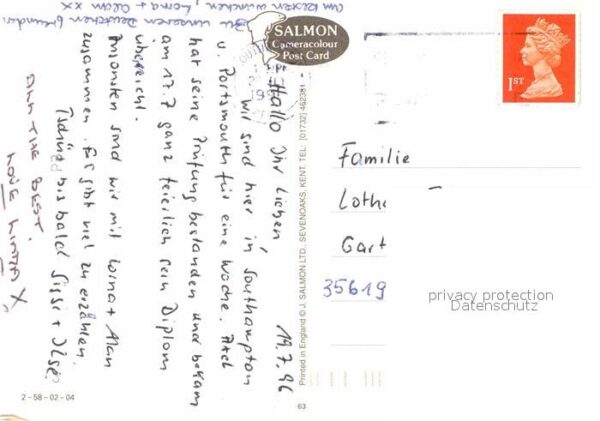 Am besten wünschen, Lorna + Alan xx
Zu unseren Deutschen freunden
SALMON
Cameracolour
Post Card
1ST
19.7.96
Hallo Ihr Lieben,
wir sind hier in Southampton
u. Portsmouth für eine Woche. Axel
hat seine Prüfung bestanden und bekam
am 17.7 ganz feierlich sein Diplom
überreicht.
Ansonsten sind wir mit Lorna + Alan
zusammen. Es gibt viel zu erzählen
Tschüss bis bald Sissi + Ilse
ALL THE BEST.
LOVE X
Printed in England © J. SALMON LTD., SEVENOAKS, KENT. TEL: (01732) 452381
Familie
Lotha
Gart
35619
privacy protection
Datenschutz
2-58-02-04
63